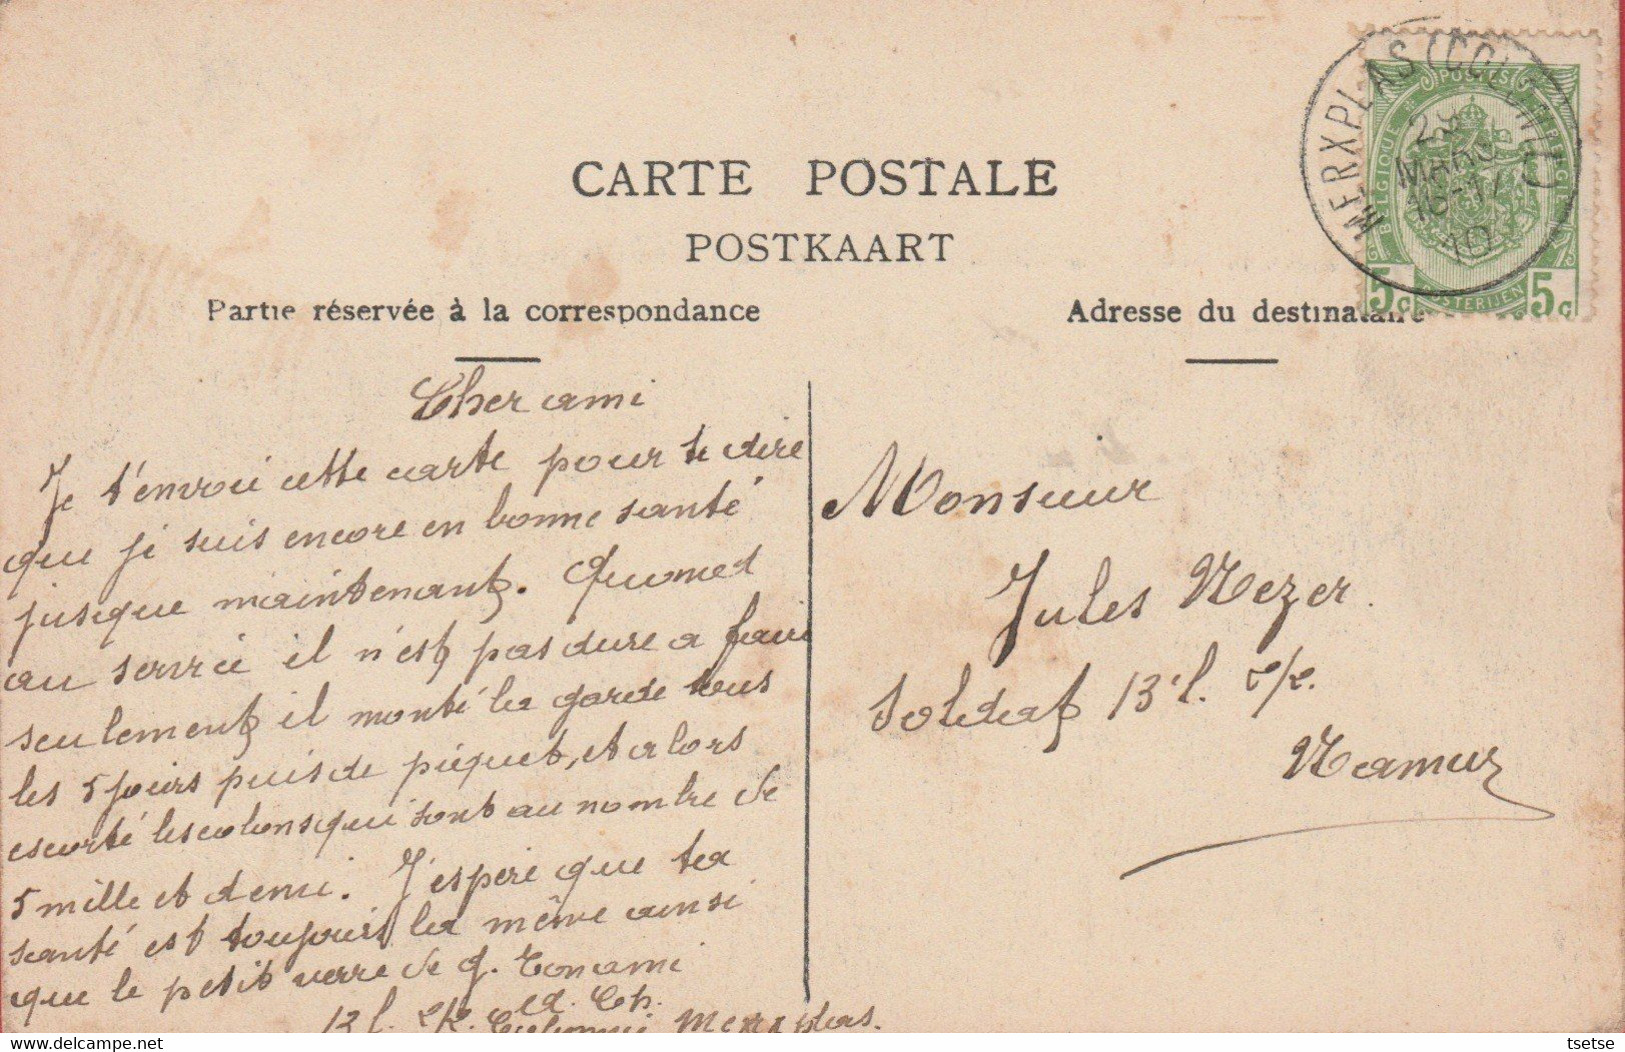 CARTE POSTALE
POSTKAART
Partie réservée à la correspondance
Adresse du destinataire
MERXPLAS (COLONIE)
MARS
16-17
10
POSTES
BELGIQUE
BELGIE
POSTERIJEN
5c 5c
Cher ami
Je t'envoi cette carte pour te dire
que je suis encore en bonne santé
jusque maintenant. Quomet
au service il n'est pas dure a faire
seulement il monté la garde tous
les 5 jours puis de piequet, et alors
escorté les colons qui sont au nombre de
5 mille et demi. J'espere que ta
santé est toujours la même ainsi
que le petit verre de g. Ton ami
Ed. Ch.
13 l. Colonnie Merxplas.
Monsieur
Jules Nezer.
Soldat 13e l.
Namur
delcampe.net
tsetse